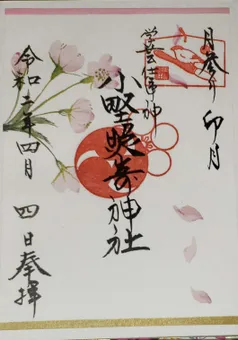 月参り 卯月
学芸上達神
小野照崎神社
令和二年四月四日奉拝